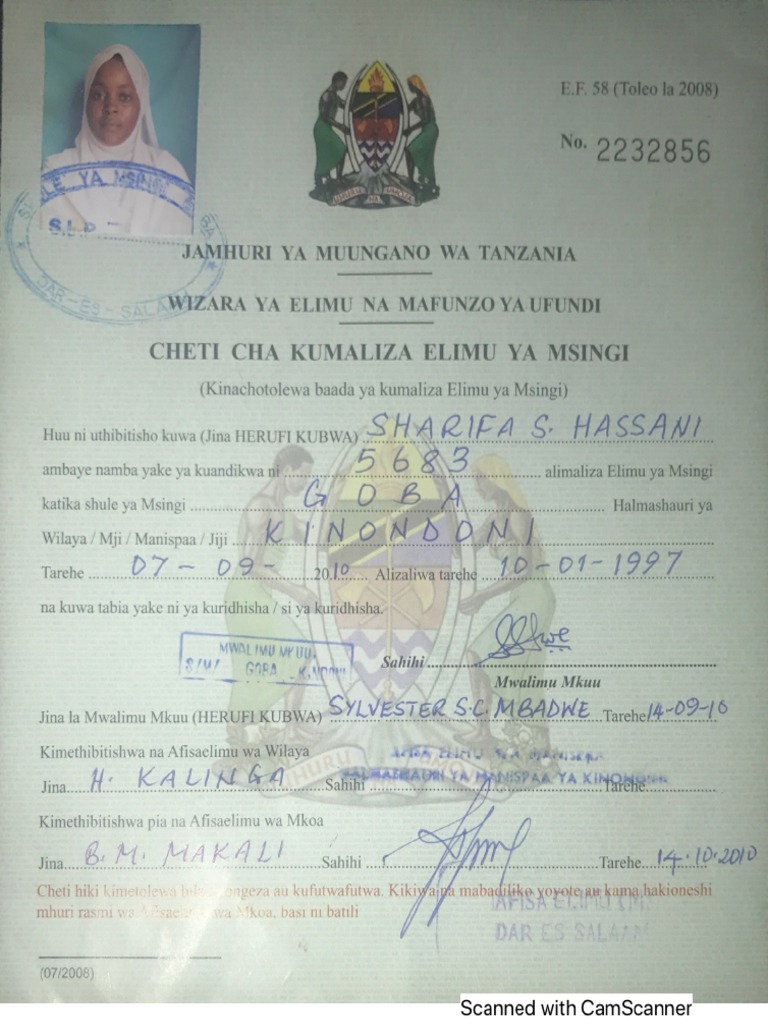 E.F. 58 (Toleo la 2008)
No. 2232856
SHULE YA MSINGI
S.L.P
DAR-ES-SALAAM
JAMHURI YA MUUNGANO WA TANZANIA
WIZARA YA ELIMU NA MAFUNZO YA UFUNDI
CHETI CHA KUMALIZA ELIMU YA MSINGI
(Kinachotolewa baada ya kumaliza Elimu ya Msingi)
Huu ni uthibitisho kuwa (Jina HERUFI KUBWA) SHARIFA S. HASSANI
ambaye namba yake ya kuandikwa ni 5683 alimaliza Elimu ya Msingi
katika shule ya Msingi GOBA Halmashauri ya
Wilaya / Mji / Manispaa / Jiji KINONDONI
Tarehe 07-09- 2010 Alizaliwa tarehe 10-01-1997
na kuwa tabia yake ni ya kuridhisha / si ya kuridhisha.
MWALIMU MKUU
S/M GOBA KINONI
Sahihi
Mwalimu Mkuu
Jina la Mwalimu Mkuu (HERUFI KUBWA) SYLVESTER S.C MBADWE Tarehe 14-09-10
Kimethibitishwa na Afisaelimu wa Wilaya
AFISA ELIMU WA MANISPAA
HALMASHAURI YA MANISPAA YA KINONDONI
Jina H. KALINGA Sahihi Tarehe
Kimethibitishwa pia na Afisaelimu wa Mkoa
Jina B.M. MAKALI Sahihi Tarehe 14.10.2010
Cheti hiki kimetolewa bila kuongeza au kufutwafutwa. Kikiwa na mabadiliko yoyote au kama hakioneshi
mhuri rasmi wa Afisaelimu wa Mkoa, basi ni batili
AFISA ELIMU
DAR ES SALAAM
(07/2008)
Scanned with CamScanner